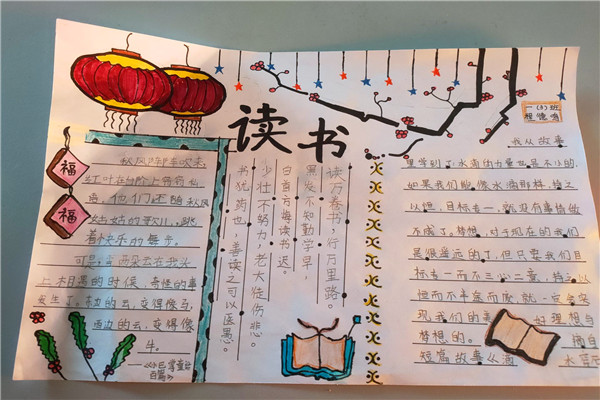 读书
福
福
秋风阵阵吹来,
红叶在台阶上
他们还随秋风
姑姑的歌儿,跳
着快乐的舞步。
可是,当两朵云在我头
上相遇的时候,奇怪的事
发生了。东边的云,变得像马,
西边的云,变得像
牛。
读万卷书,行万里路。
黑发不知勤学早,
白首方悔读书迟。
少壮不努力,老大徒伤悲。
书犹药也,善读之可以医愚。
一(3)班
我从故事
里学到了:水滴的力量也是不小的,
如果我们能像水滴那样,持之
以恒,目标专一,就没有事情做
不成了。梦想,对于现在的我们
是很遥远的了,但只要我们目
标专一而不三心二意,持之以
恒而不半途而废,就一定会实
现我们的
理想与
梦想的。
摘自
短篇故事
水